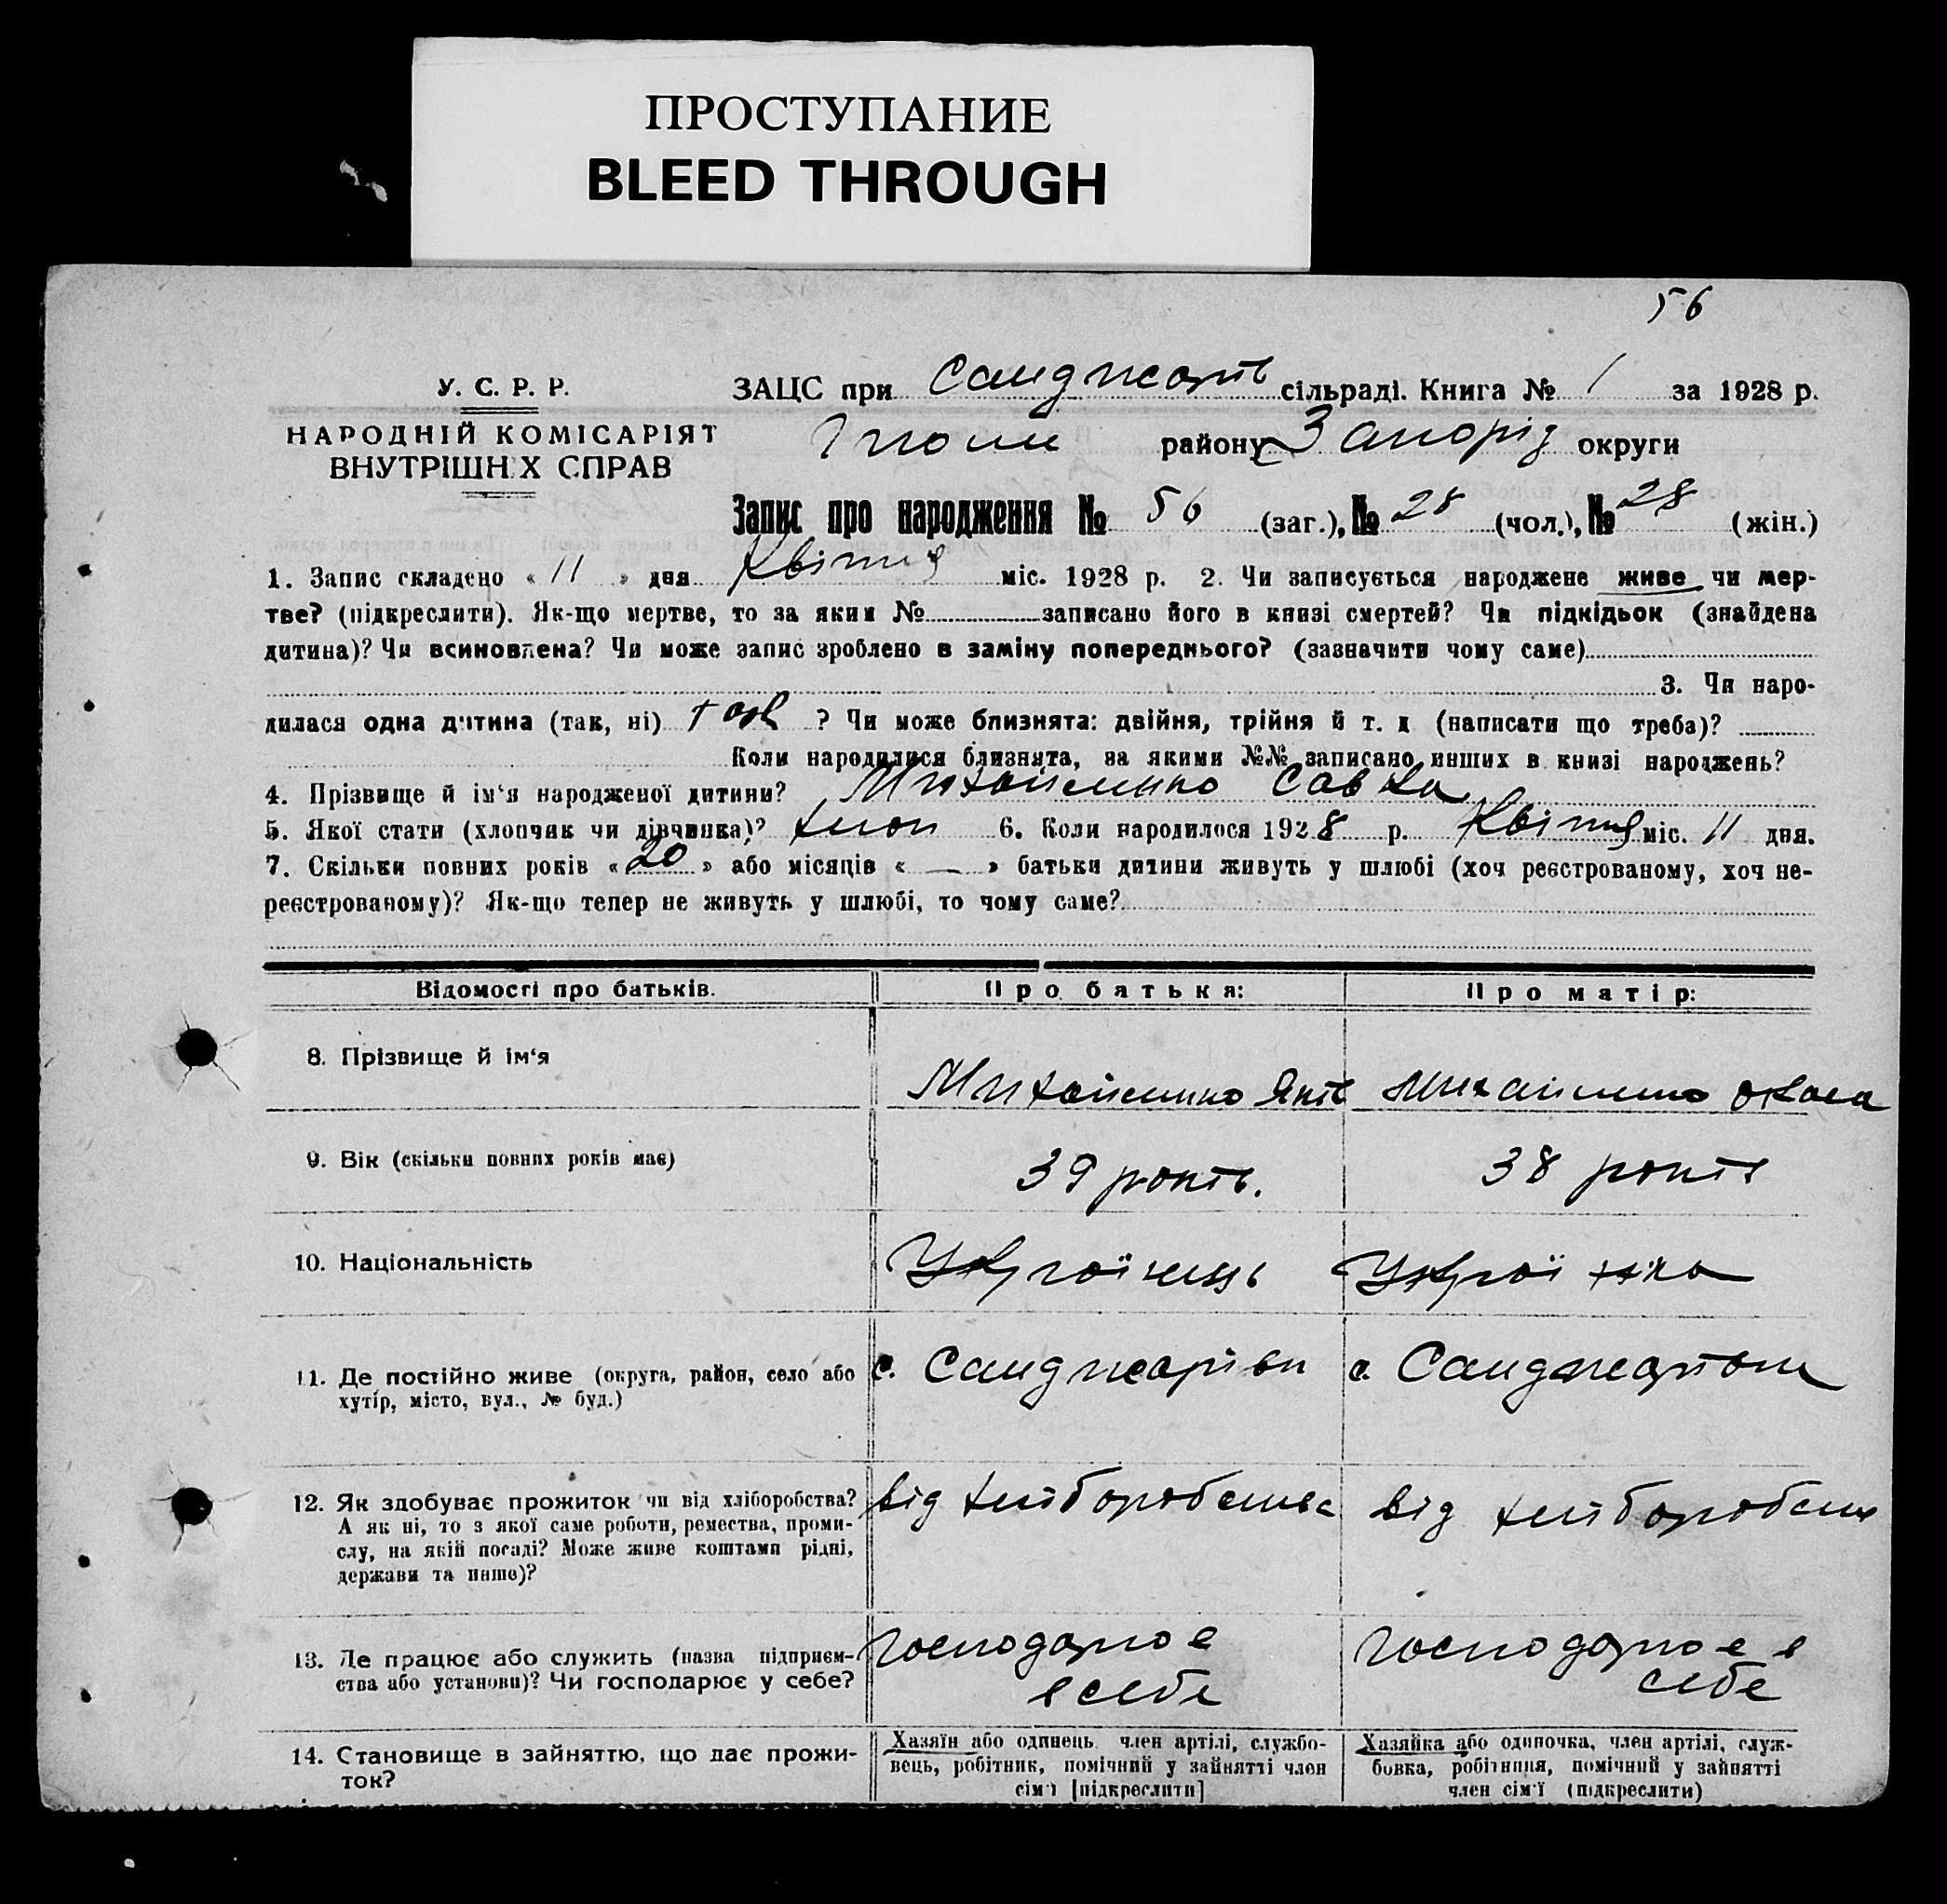 ПРОСТУПАНИЕ
BLEED THROUGH
56
У. С. Р. Р.
НАРОДНІЙ КОМІСАРІЯТ
ВНУТРІШНІХ СПРАВ
ЗАЦС при Санджарів сільраді. Книга № 1 за 1928 р.
району Запоріз округи
Запис про народження № 56 (заг.), № 28 (чол.), № 28 (жін.)
1. Запис складено « 11 » дня Квітня міс. 1928 р. 2. Чи записується народжене живе чи мер-
тве? (підкреслити). Як-що мертве, то за яким № записано його в книзі смертей? Чи підкідьок (знайдена
дитина)? Чи всиновлена? Чи може запис зроблено в заміну попереднього? (зазначити чому саме)
3. Чи наро-
дилася одна дитина (так, ні) так ? Чи може близнята: двійня, трійня й т. д (написати що треба)?
Коли народилися близнята, за якими №№ записано инших в книзі народжень?
4. Прізвище й ім'я народженої дитини? Михайленко Савка
5. Якої стати (хлопчик чи дівчинка)? хлоп 6. Коли народилося 1928 р. Квітня міс. 11 дня.
7. Скільки повних років « 20 » або місяців « — » батьки дитини живуть у шлюбі (хоч реєстрованому, хоч не-
реєстрованому)? Як-що тепер не живуть у шлюбі, то чому саме?
Відомості про батьків. Про батька: Про матір:
8. Прізвище й ім'я Михайленко Яків Михайленко
9. Вік (скільки повних років має) 39 років. 38 років
10. Національність Українець Українка
11. Де постійно живе (округа, район, село або с. Санджарівки с. Санджарівки
хутір, місто, вул., № буд.)
12. Як здобуває прожиток чи від хліборобства? від хліборобства від хліборобства
А як ні, то з якої саме роботи, ремества, проми-
слу, на якій посаді? Може живе коштами рідні,
держави та инше)?
13. Де працює або служить (назва підприєм- господарює господарює в
ства або установи)? Чи господарює у себе? в себе себе
14. Становище в зайняттю, що дає прожи- Хазяїн або одинець член артілі, службо- Хазяйка або одиночка, член артілі, служ-
ток? вець, робітник, помічний у зайнятті член бовка, робітниця, помічний у зайнятті
сім'ї [підкреслити] член сім'ї (підкреслити)